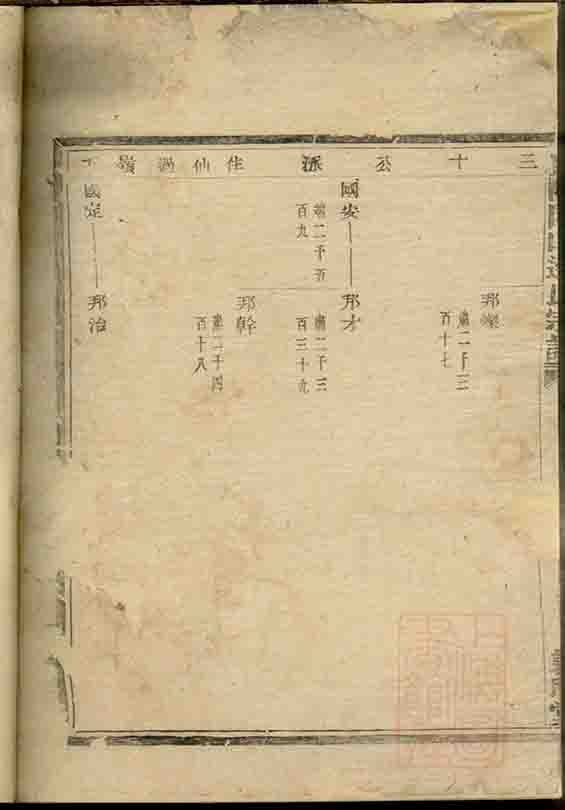 三十公派住仙過嶺下
邦燦
肅二千三
百十七
國安——邦才
端二千五
百九
肅二千三
百三十九
邦幹
肅二千四
百十八
國定——邦治